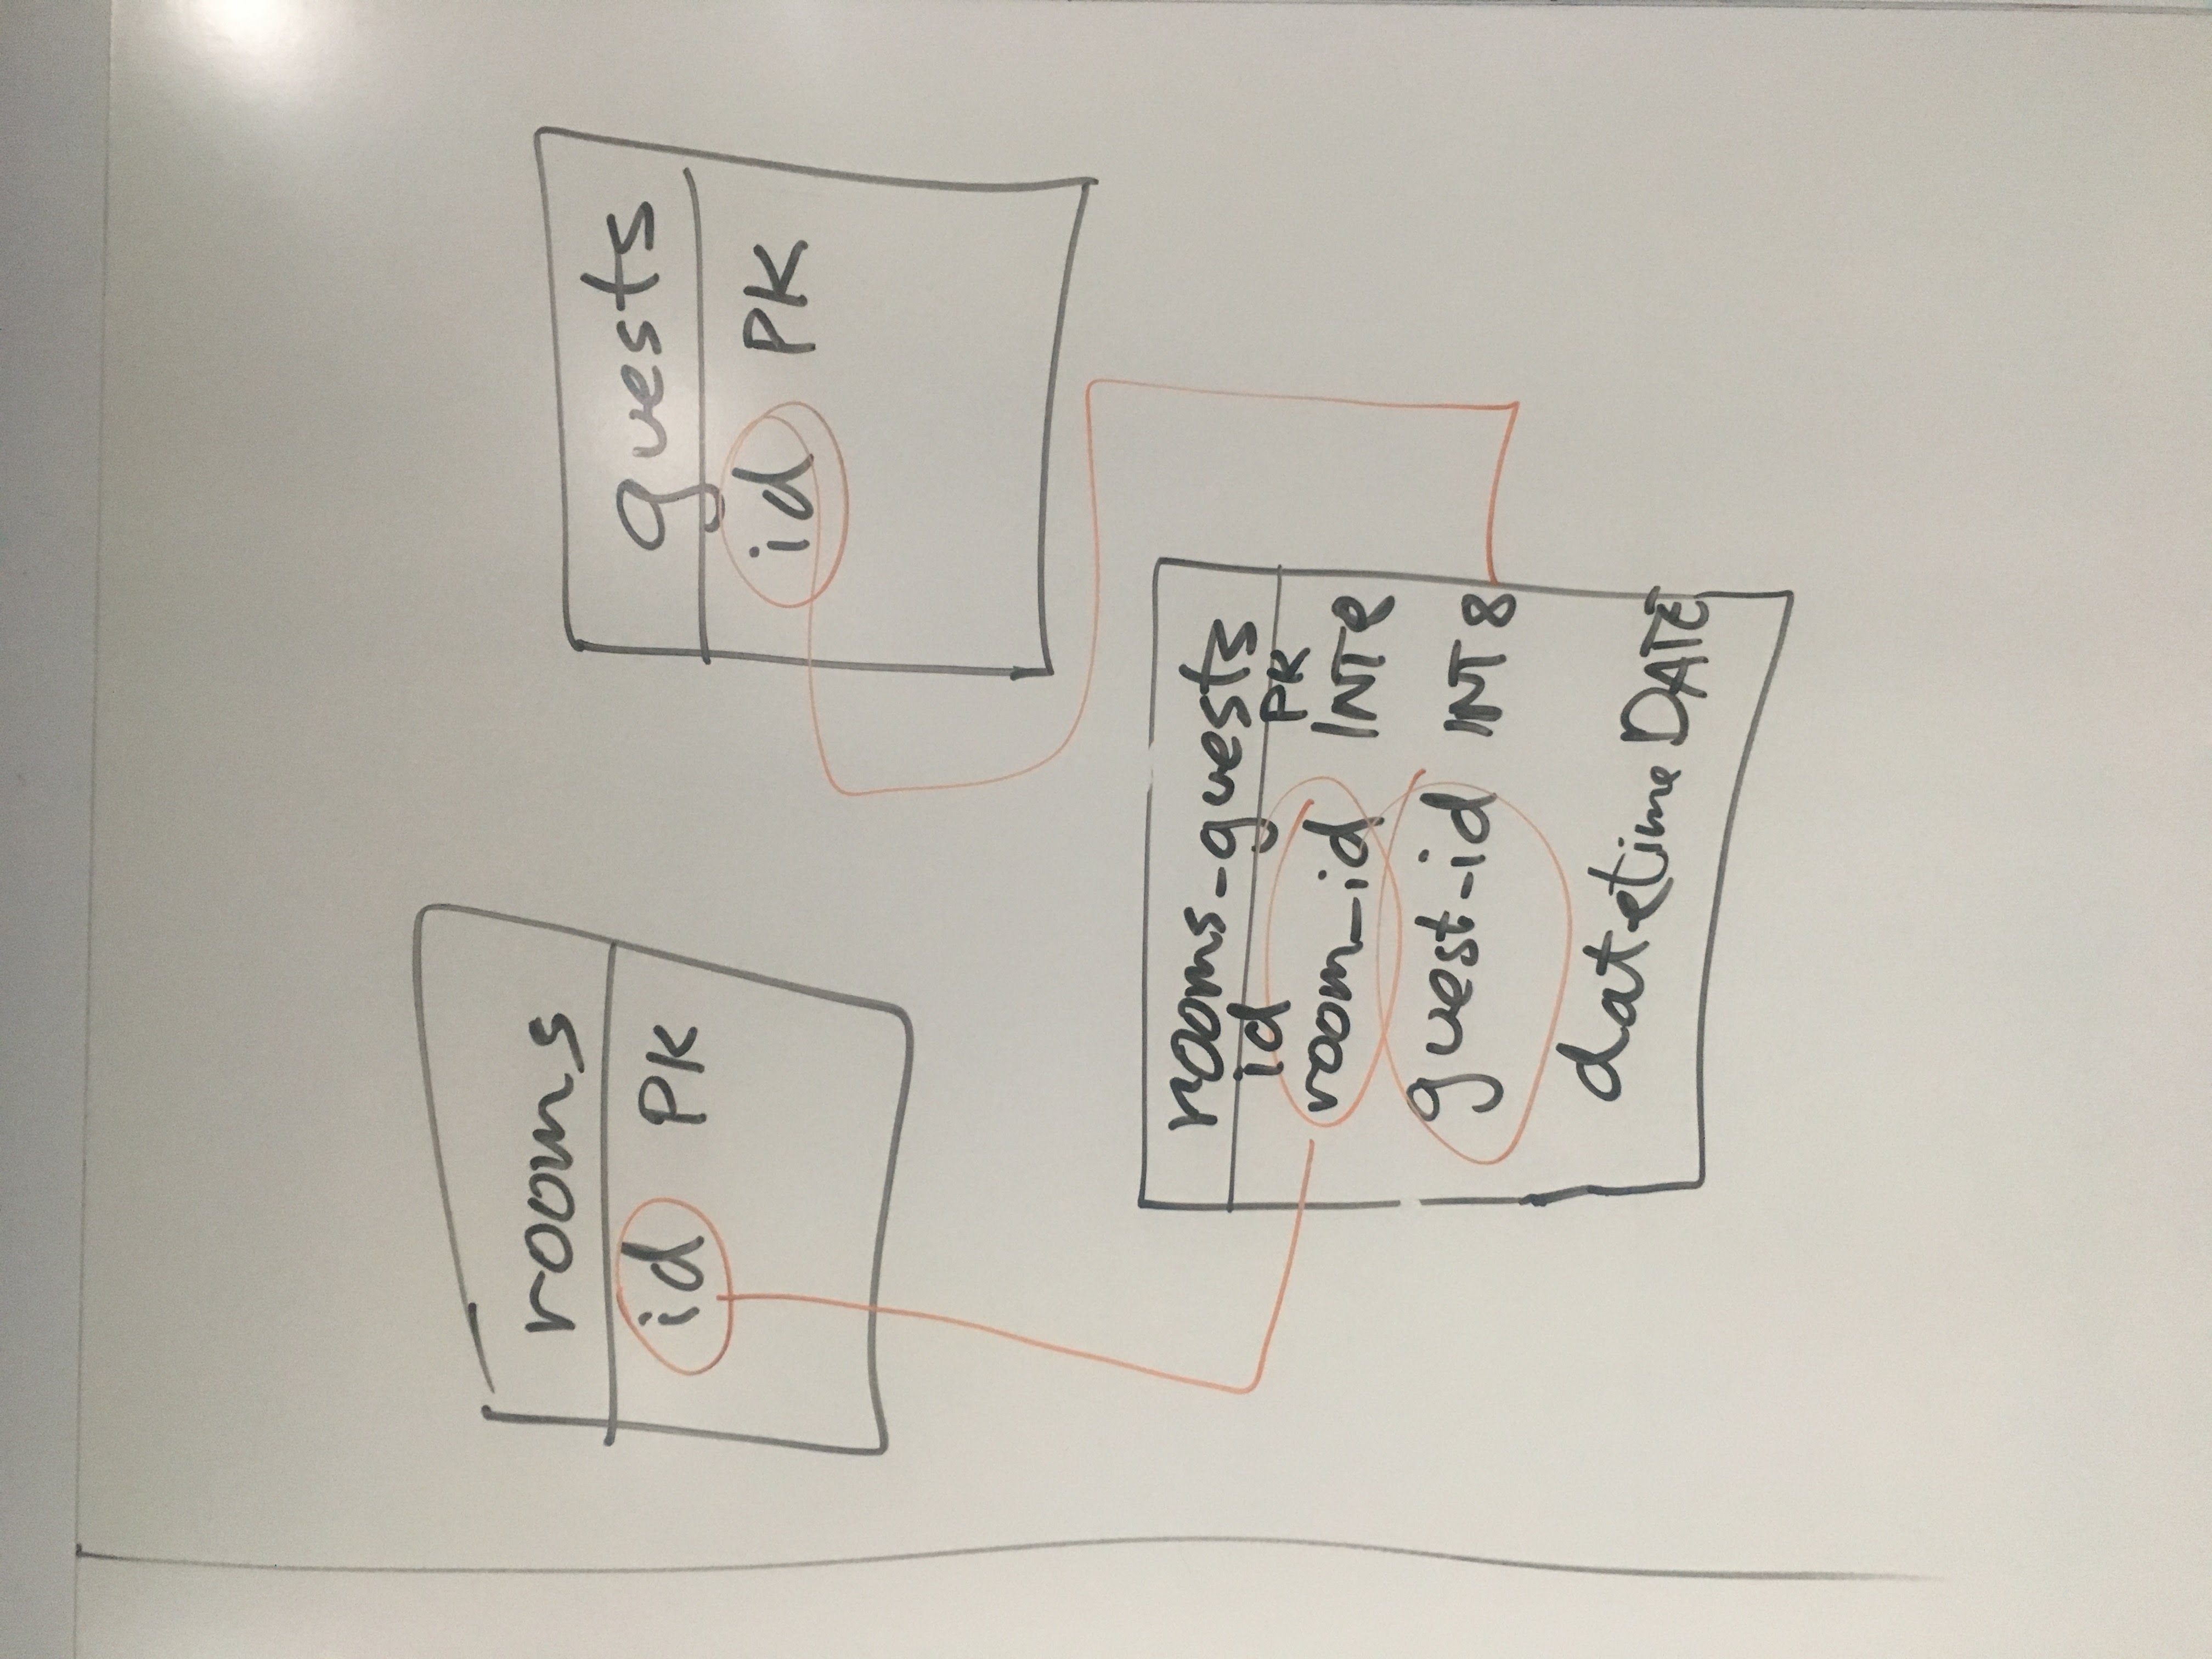 rooms
id PK
guests
id PK
rooms_guests
id PK
room_id INT8
guest_id INT8
datetime DATE